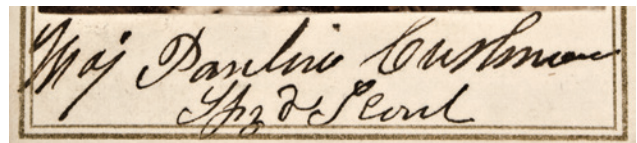 Maj Pauline Cushman
Spy & Scout